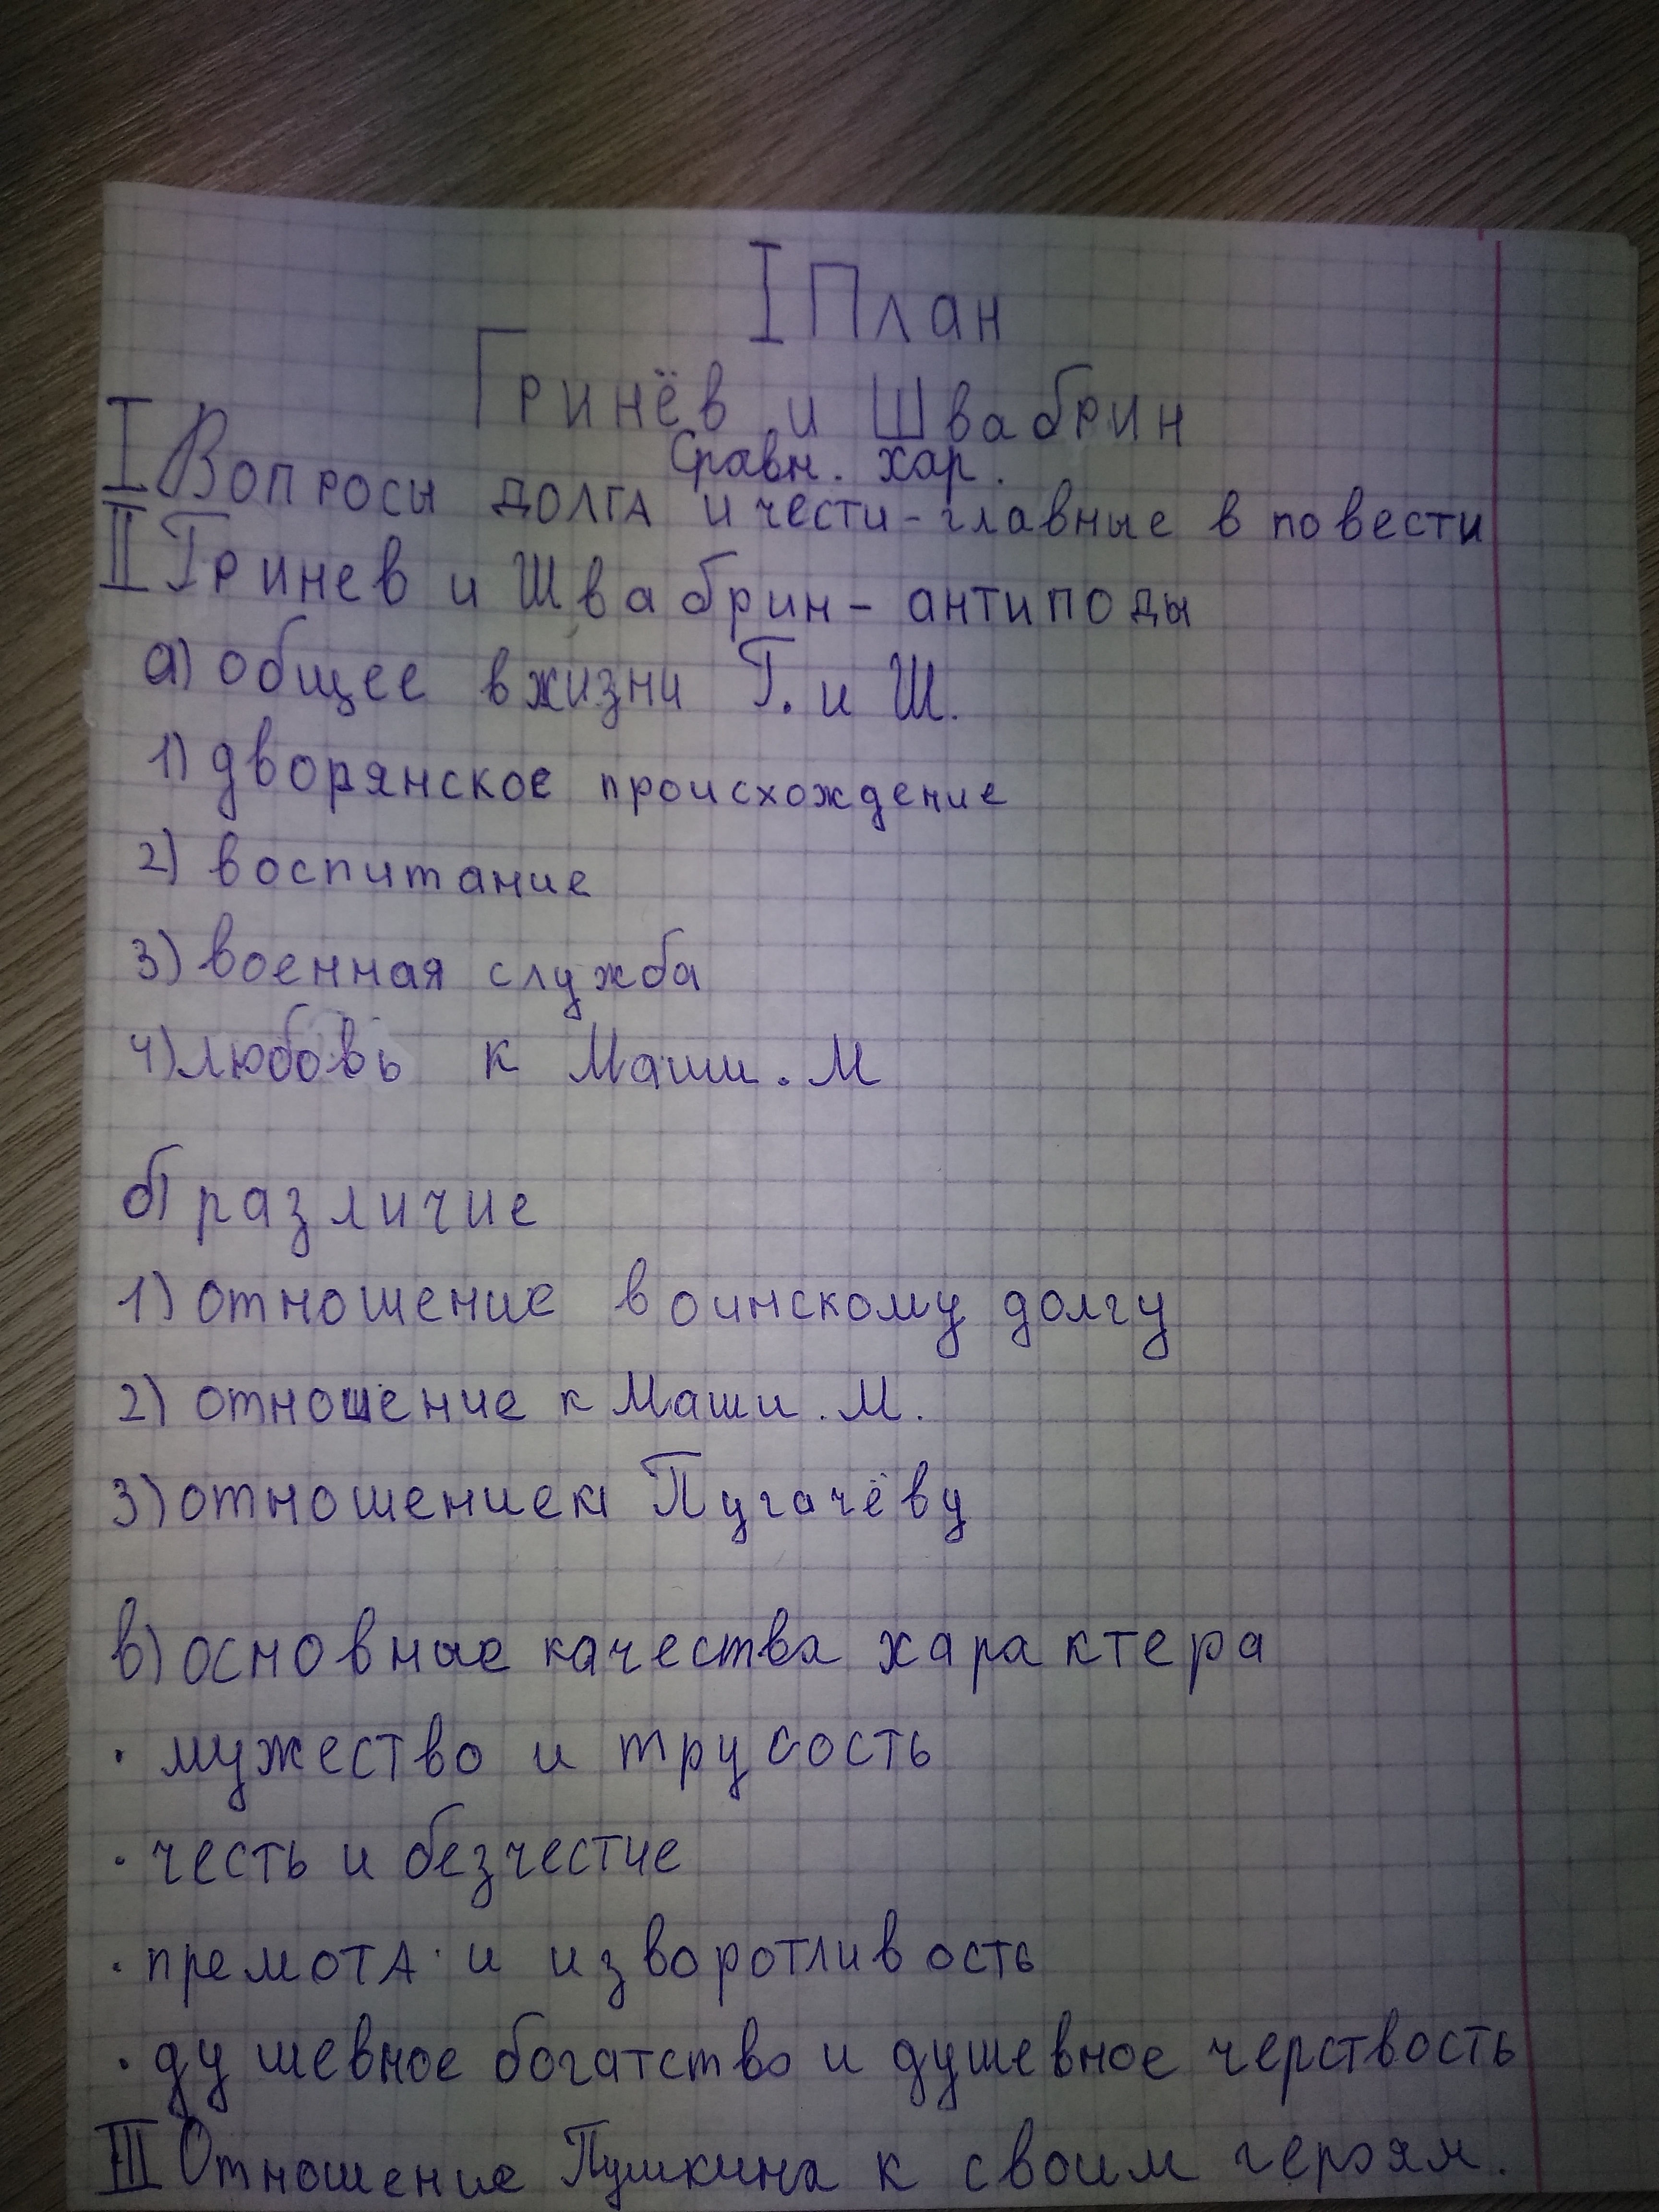 I План
Гринёв и Швабрин
Сравн. хар.
I Вопросы долга и чести - главные в повести
II Гринев и Швабрин - антиподы
а) общее в жизни Г. и Ш.
1) дворянское происхождение
2) воспитание
3) военная служба
4) любовь к Маши. М
б) различие
1) отношение воинскому долгу
2) отношение к Маши. М.
3) отношение к Пугачёву
в) основные качества характера
· мужество и трусость
· честь и безчестие
· премота и изворотливость
· душевное богатство и душевное черствость
III Отношение Пушкина к своим героям.